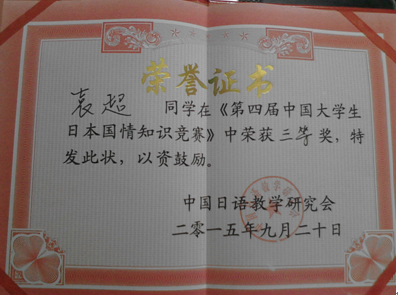 荣誉证书
袁超 同学在《第四届中国大学生
日本国情知识竞赛》中荣获三等奖，特
发此状，以资鼓励。
中国日语教学研究会
二零一五年九月二十日